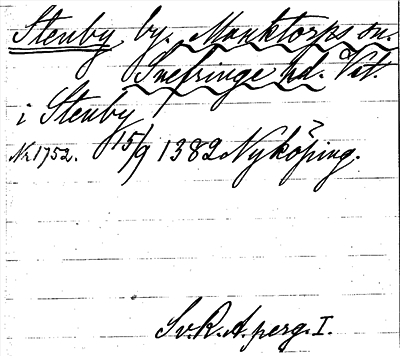 Stenby by. Munktorps sn.
Snefringe hd. Vstl.
i Stenby
Nr 1752. 15/9 1382 Nyköping.
Sv.R.A. perg. I.